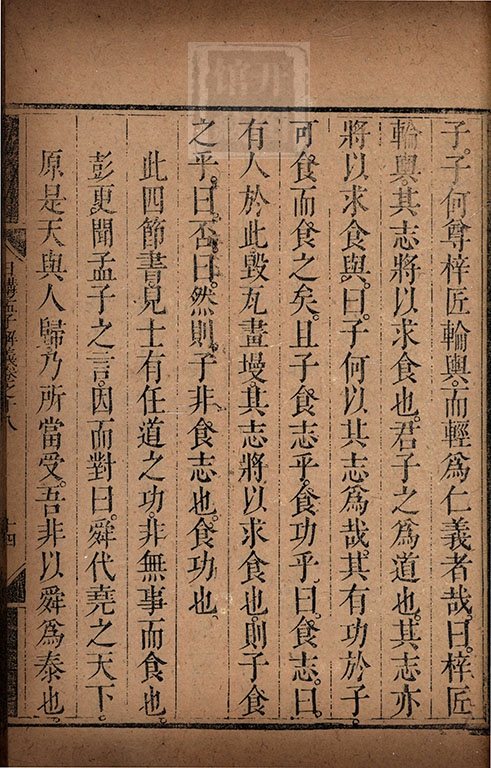 子子何尊梓匠輪輿而輕爲仁義者哉曰梓匠
輪輿其志將以求食也君子之爲道也其志亦
將以求食與曰子何以其志爲哉其有功於子
可食而食之矣且子食志乎食功乎曰食志曰
有人於此毀瓦畫墁其志將以求食也則子食
之乎曰否曰然則子非食志也食功也
此四節書見士有任道之功非無事而食也
彭更聞孟子之言因而對曰舜代堯之天下
原是天與人歸乃所當受吾非以舜爲泰也
日講四書解義卷之十八
十四